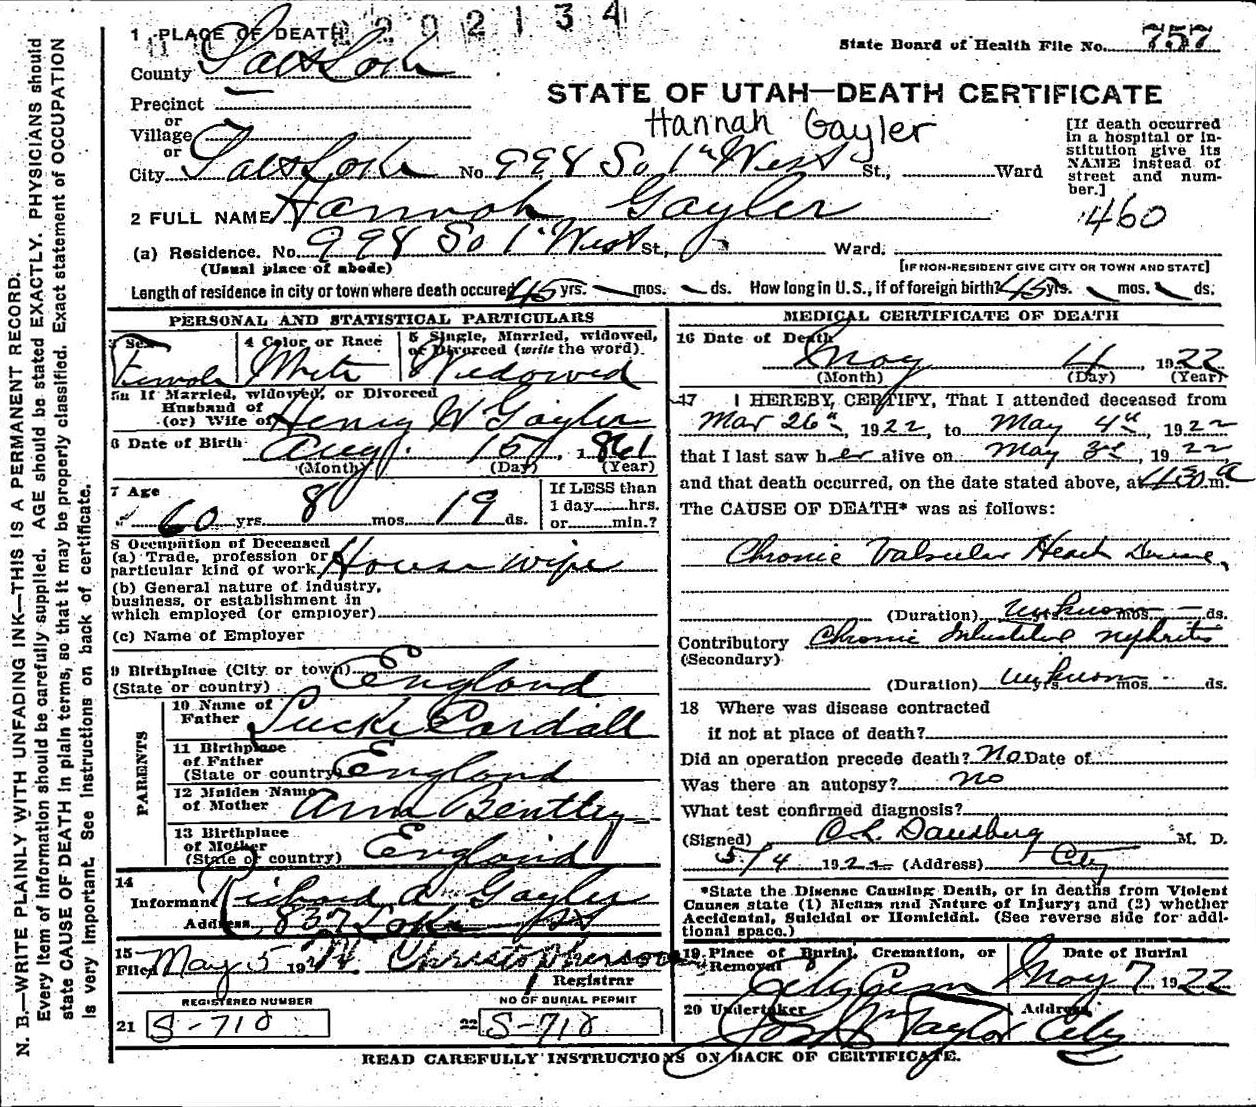 2202134
1 PLACE OF DEATH
State Board of Health File No. 757
County Salt Lake
STATE OF UTAH—DEATH CERTIFICATE
Precinct
or
Village
or
Hannah Gayler
[If death occurred in a hospital or institution give its NAME instead of street and number.]
City Salt Lake No. 998 So 1st West St., Ward
2 FULL NAME Hannah Gayler
460
(a) Residence. No. 998 So 1st West St., Ward.
(Usual place of abode)
[IF NON-RESIDENT GIVE CITY OR TOWN AND STATE]
Length of residence in city or town where death occured 45 yrs. — mos. — ds. How long in U.S., if of foreign birth? 45 yrs. mos. ds.
PERSONAL AND STATISTICAL PARTICULARS
3 Sex Female
4 Color or Race White
5 Single, Married, Widowed, or Divorced (write the word). Widowed
5a If Married, widowed, or Divorced
Husband of
(or) Wife of Henry W Gayler
6 Date of Birth Aug. 15, 1861
(Month) (Day) (Year)
7 Age 60 yrs. 8 mos. 19 ds.
If LESS than
1 day......hrs.
or......min.?
8 Occupation of Deceased
(a) Trade, profession or
particular kind of work House wife
(b) General nature of industry,
business, or establishment in
which employed (or employer)
(c) Name of Employer
9 Birthplace (City or town)
(State or country) England
PARENTS
10 Name of
Father Cardall
11 Birthplace
of Father
(State or country) England
12 Maiden Name
of Mother Ann Bentley
13 Birthplace
of Mother
(State or country) England
14
Informant Richard A Gayler
Address 837 Lake St
15
Filed May 5 19 Christopherson
Registrar
REGISTERED NUMBER
21 S-718
NO OF BURIAL PERMIT
22 S-718
MEDICAL CERTIFICATE OF DEATH
16 Date of Death
May 4, 1922
(Month) (Day) (Year)
17 I HEREBY CERTIFY, That I attended deceased from
Mar 26th, 1922, to May 4th, 1922
that I last saw her alive on May 3rd, 1922
and that death occurred, on the date stated above, at 430 a m.
The CAUSE OF DEATH* was as follows:
Chronic Valvular Heart Disease,
(Duration) unknown yrs. mos. — ds.
Contributory Chronic Interstitial Nephritis
(Secondary)
(Duration) unknown yrs. mos. ds.
18 Where was disease contracted
if not at place of death?
Did an operation precede death? No Date of
Was there an autopsy? no
What test confirmed diagnosis?
(Signed) M. D.
5/4 1922 (Address) City
*State the Disease Causing Death, or in deaths from Violent
Causes state (1) Means and Nature of Injury; and (2) whether
Accidental, Suicidal or Homicidal. (See reverse side for additional space.)
19 Place of Burial, Cremation, or
Removal City Cem
Date of Burial
May 7 1922
20 Undertaker Taylor
Address City
READ CAREFULLY INSTRUCTIONS ON BACK OF CERTIFICATE.
N. B.—WRITE PLAINLY WITH UNFADING INK—THIS IS A PERMANENT RECORD.
Every item of information should be carefully supplied. AGE should be stated EXACTLY. PHYSICIANS should
state CAUSE OF DEATH in plain terms, so that it may be properly classified. Exact statement of OCCUPATION
is very important. See instructions on back of certificate.